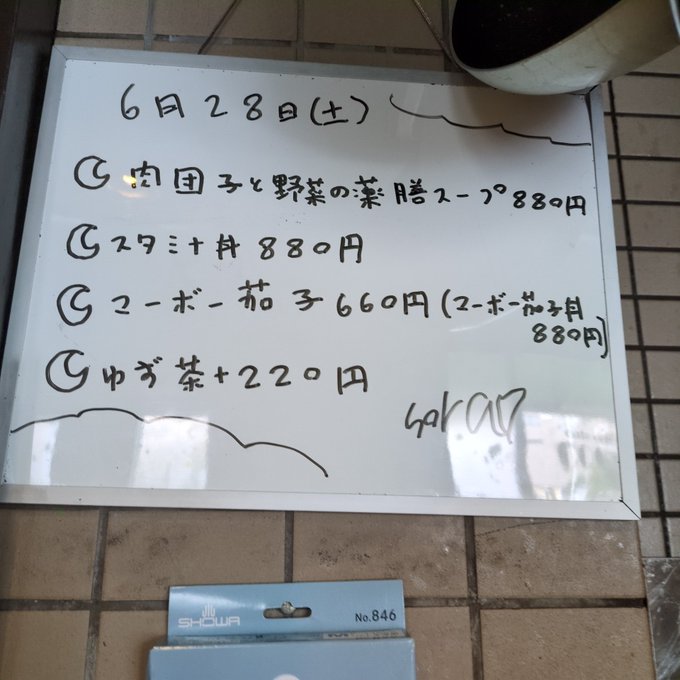 6月28日(土)
肉団子と野菜の薬膳スープ880円
スタミナ丼 880円
マーボー茄子660円(マーボー茄子丼
880円)
ゆず茶+220円
sorao
SHOWA
No.846